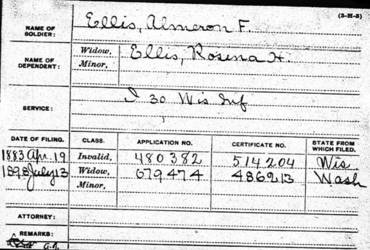 (3-H-3)
NAME OF SOLDIER: Ellis, Almeron F.
NAME OF DEPENDENT: Widow, Ellis, Rosena H.
Minor,
SERVICE: I 30 Wis Inf
DATE OF FILING. CLASS. APPLICATION NO. CERTIFICATE NO. STATE FROM WHICH FILED.
1883 Apr. 19 Invalid, 480382 514204 Wis
1898 July 13 Widow, 679474 486213 Wash
Minor,
ATTORNEY:
REMARKS: